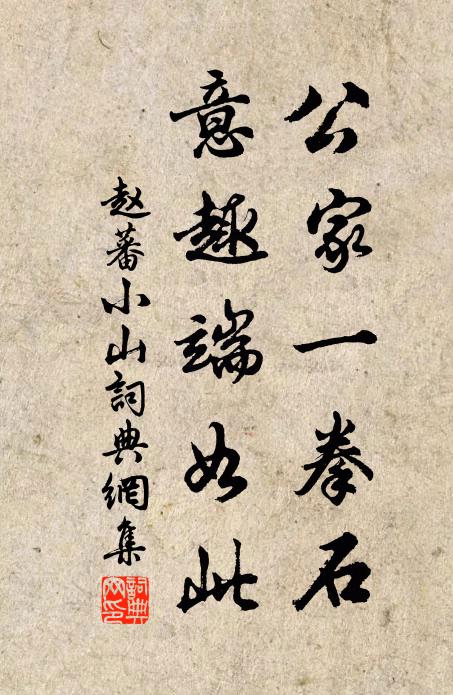 公家一拳石
意趣端如此
赵蕃小山詞典網集
詞典網印